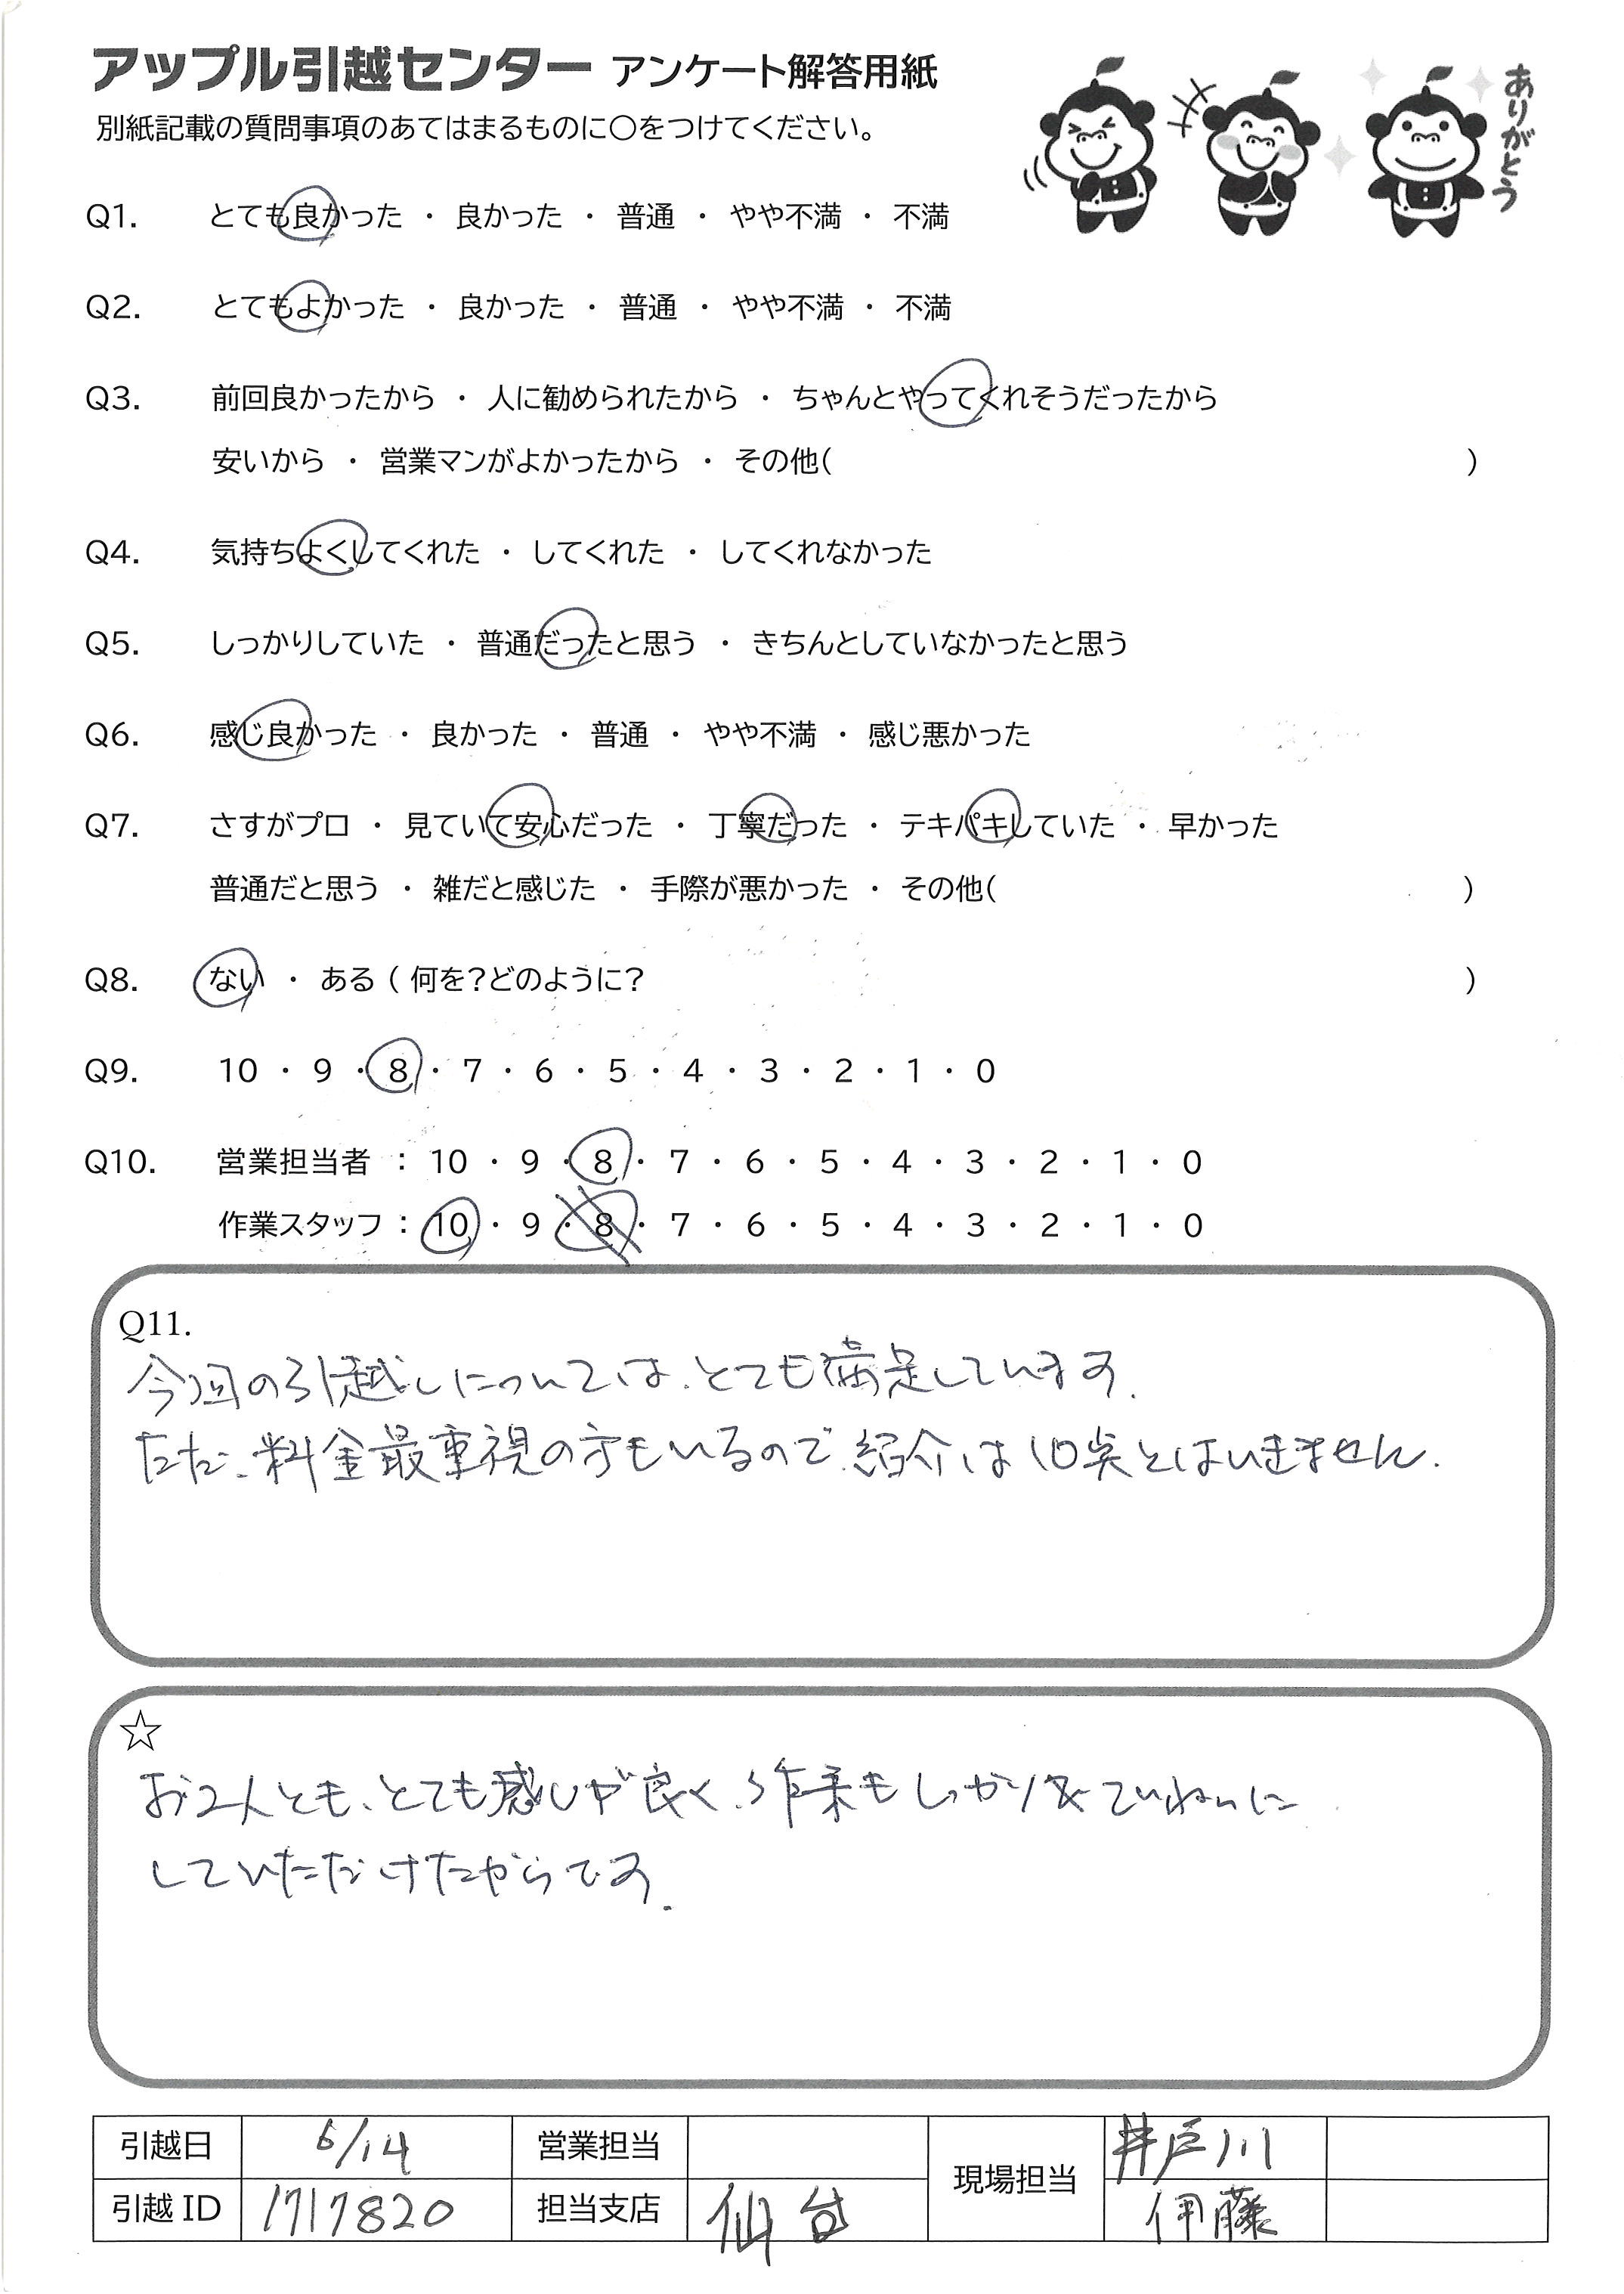 アップル引越センター アンケート解答用紙
別紙記載の質問事項のあてはまるものに○をつけてください。
ありがとう
Q1. とても良かった ・ 良かった ・ 普通 ・ やや不満 ・ 不満
Q2. とてもよかった ・ 良かった ・ 普通 ・ やや不満 ・ 不満
Q3. 前回良かったから ・ 人に勧められたから ・ ちゃんとやってくれそうだったから
安いから ・ 営業マンがよかったから ・ その他( )
Q4. 気持ちよくしてくれた ・ してくれた ・ してくれなかった
Q5. しっかりしていた ・ 普通だったと思う ・ きちんとしていなかったと思う
Q6. 感じ良かった ・ 良かった ・ 普通 ・ やや不満 ・ 感じ悪かった
Q7. さすがプロ ・ 見ていて安心だった ・ 丁寧だった ・ テキパキしていた ・ 早かった
普通だと思う ・ 雑だと感じた ・ 手際が悪かった ・ その他( )
Q8. ない ・ ある ( 何を?どのように? )
Q9. 10 ・ 9 ・ 8 ・ 7 ・ 6 ・ 5 ・ 4 ・ 3 ・ 2 ・ 1 ・ 0
Q10. 営業担当者 : 10 ・ 9 ・ 8 ・ 7 ・ 6 ・ 5 ・ 4 ・ 3 ・ 2 ・ 1 ・ 0
作業スタッフ : 10 ・ 9 ・ 8 ・ 7 ・ 6 ・ 5 ・ 4 ・ 3 ・ 2 ・ 1 ・ 0
Q11.
今回の引越しについては、とても満足しています.
ただ、料金最重視の方もいるので、紹介は10点とはいきません.
☆
お2人とも、とても感じが良く、作業もしっかり ていねいに
していただけたからです.
引越日 6/14 営業担当 現場担当 井戸川
引越ID 1717820 担当支店 仙台 伊藤